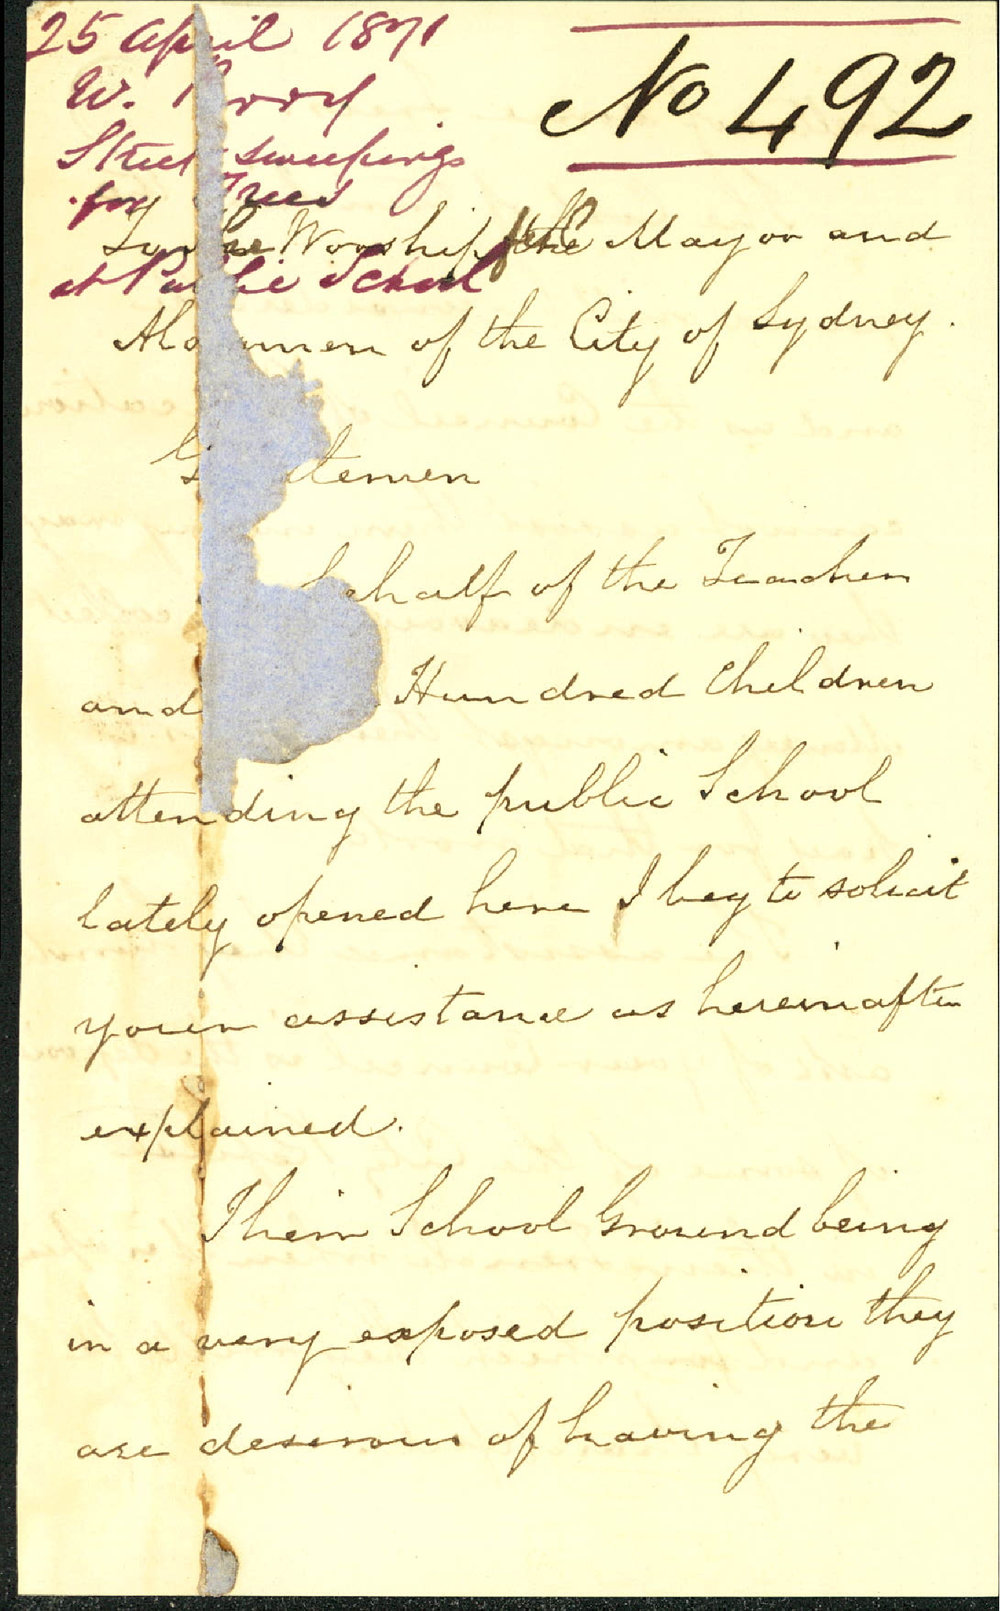 25 April 1871
No 492
W. P rry
Street sweepings
for Trees
To the Worship the Mayor and
at Public School
Ald rmen of the City of Sydney.
G tlemen
behalf of the Teacher
and Hundred Children
attending the public School
lately opened here I beg to solicit
your assistance as hereinafter
explained.
Their School Ground being
in a very exposed position they
are desirous of having the